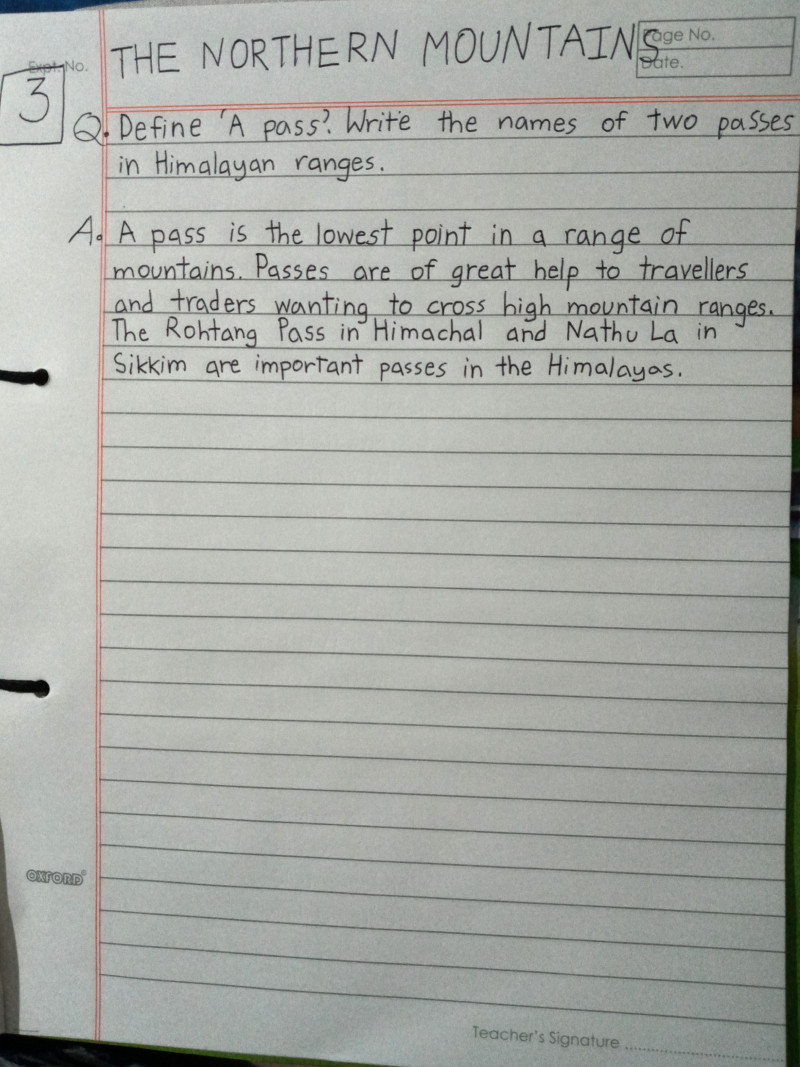 THE NORTHERN MOUNTAINS
Page No.
Expt. No.
Date.
3
Q. Define 'A pass'. Write the names of two passes
in Himalayan ranges.
A. A pass is the lowest point in a range of
mountains. Passes are of great help to travellers
and traders wanting to cross high mountain ranges.
The Rohtang Pass in Himachal and Nathu La in
Sikkim are important passes in the Himalayas.
OXFORD
Teacher's Signature